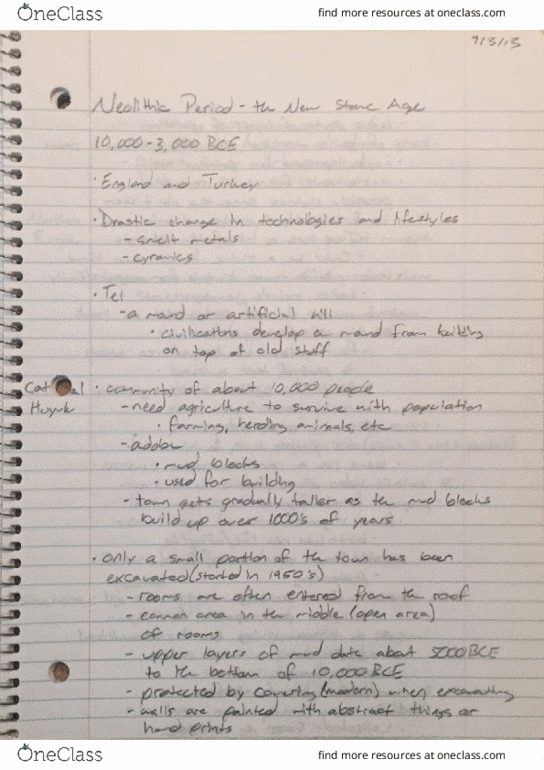 OneClass
find more resources at oneclass.com
9/3/13
Neolithic Period - the New Stone Age
10,000-3,000 BCE
· England and Turkey
· Drastic change in technologies and lifestyles
- smelt metals
- cyramics
· Tel
- a mand or artificial hill
· civilizations develop a mand from building
on top of old stuff
Cat al · community of about 10,000 people
Huyuk - need agriculture to survive with population
· farming, herding animals, etc
- adobe
· mud blocks
· used for building
- town gets gradually taller as the mud blocks
build up over 1000's of years
· only a small portion of the town has been
excavated (started in 1950's)
- rooms are often entered from the roof
- common area in the middle (open area)
of rooms
- upper layers of mud date about 5000 BCE
to the bottom of 10,000 BCE
- protected by covering (modern) when excavating
- walls are painted with abstract things or
hand prints
OneClass
find more resources at oneclass.com